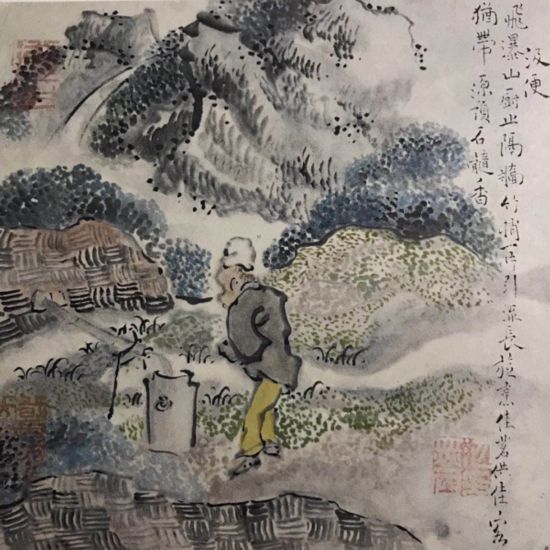 汲便
飛瀑山厨止隔牆竹梢一片引流長旋烹佳茗供佳客
猶帶源頭石髓香